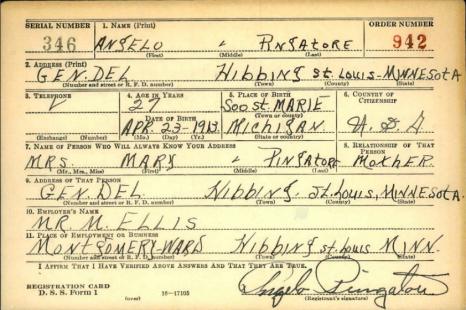 SERIAL NUMBER 1. NAME (Print) ORDER NUMBER
346 ANGELO PINGATORE 942
(First) (Middle) (Last)
2. ADDRESS (Print)
GEN. DEL HIBBING ST. LOUIS - MINNESOTA
(Number and street or R. F. D. number) (Town) (County) (State)
3. TELEPHONE 4. AGE IN YEARS 5. PLACE OF BIRTH 6. COUNTRY OF CITIZENSHIP
27 SOO ST. MARIE
DATE OF BIRTH (Town or county)
APR. 23-1913 MICHIGAN U. S. A
(Exchange) (Number) (Mo.) (Day) (Yr.) (State or country)
7. NAME OF PERSON WHO WILL ALWAYS KNOW YOUR ADDRESS 8. RELATIONSHIP OF THAT PERSON
MRS. MARY PINGATORE MOTHER
(Mr., Mrs., Miss) (First) (Middle) (Last)
9. ADDRESS OF THAT PERSON
GEN. DEL HIBBING. ST. LOUIS, MINNESOTA.
(Number and street or R. F. D. number) (Town) (County) (State)
10. EMPLOYER'S NAME
MR. M. ELLIS
11. PLACE OF EMPLOYMENT OR BUSINESS
MONTGOMERY-WARD HIBBING ST. LOUIS MINN.
(Number and street or R. F. D. number) (Town) (County) (State)
I AFFIRM THAT I HAVE VERIFIED ABOVE ANSWERS AND THAT THEY ARE TRUE.
REGISTRATION CARD
D. S. S. Form 1 (over) 16-17105 Angelo Pingatore
(Registrant's signature)